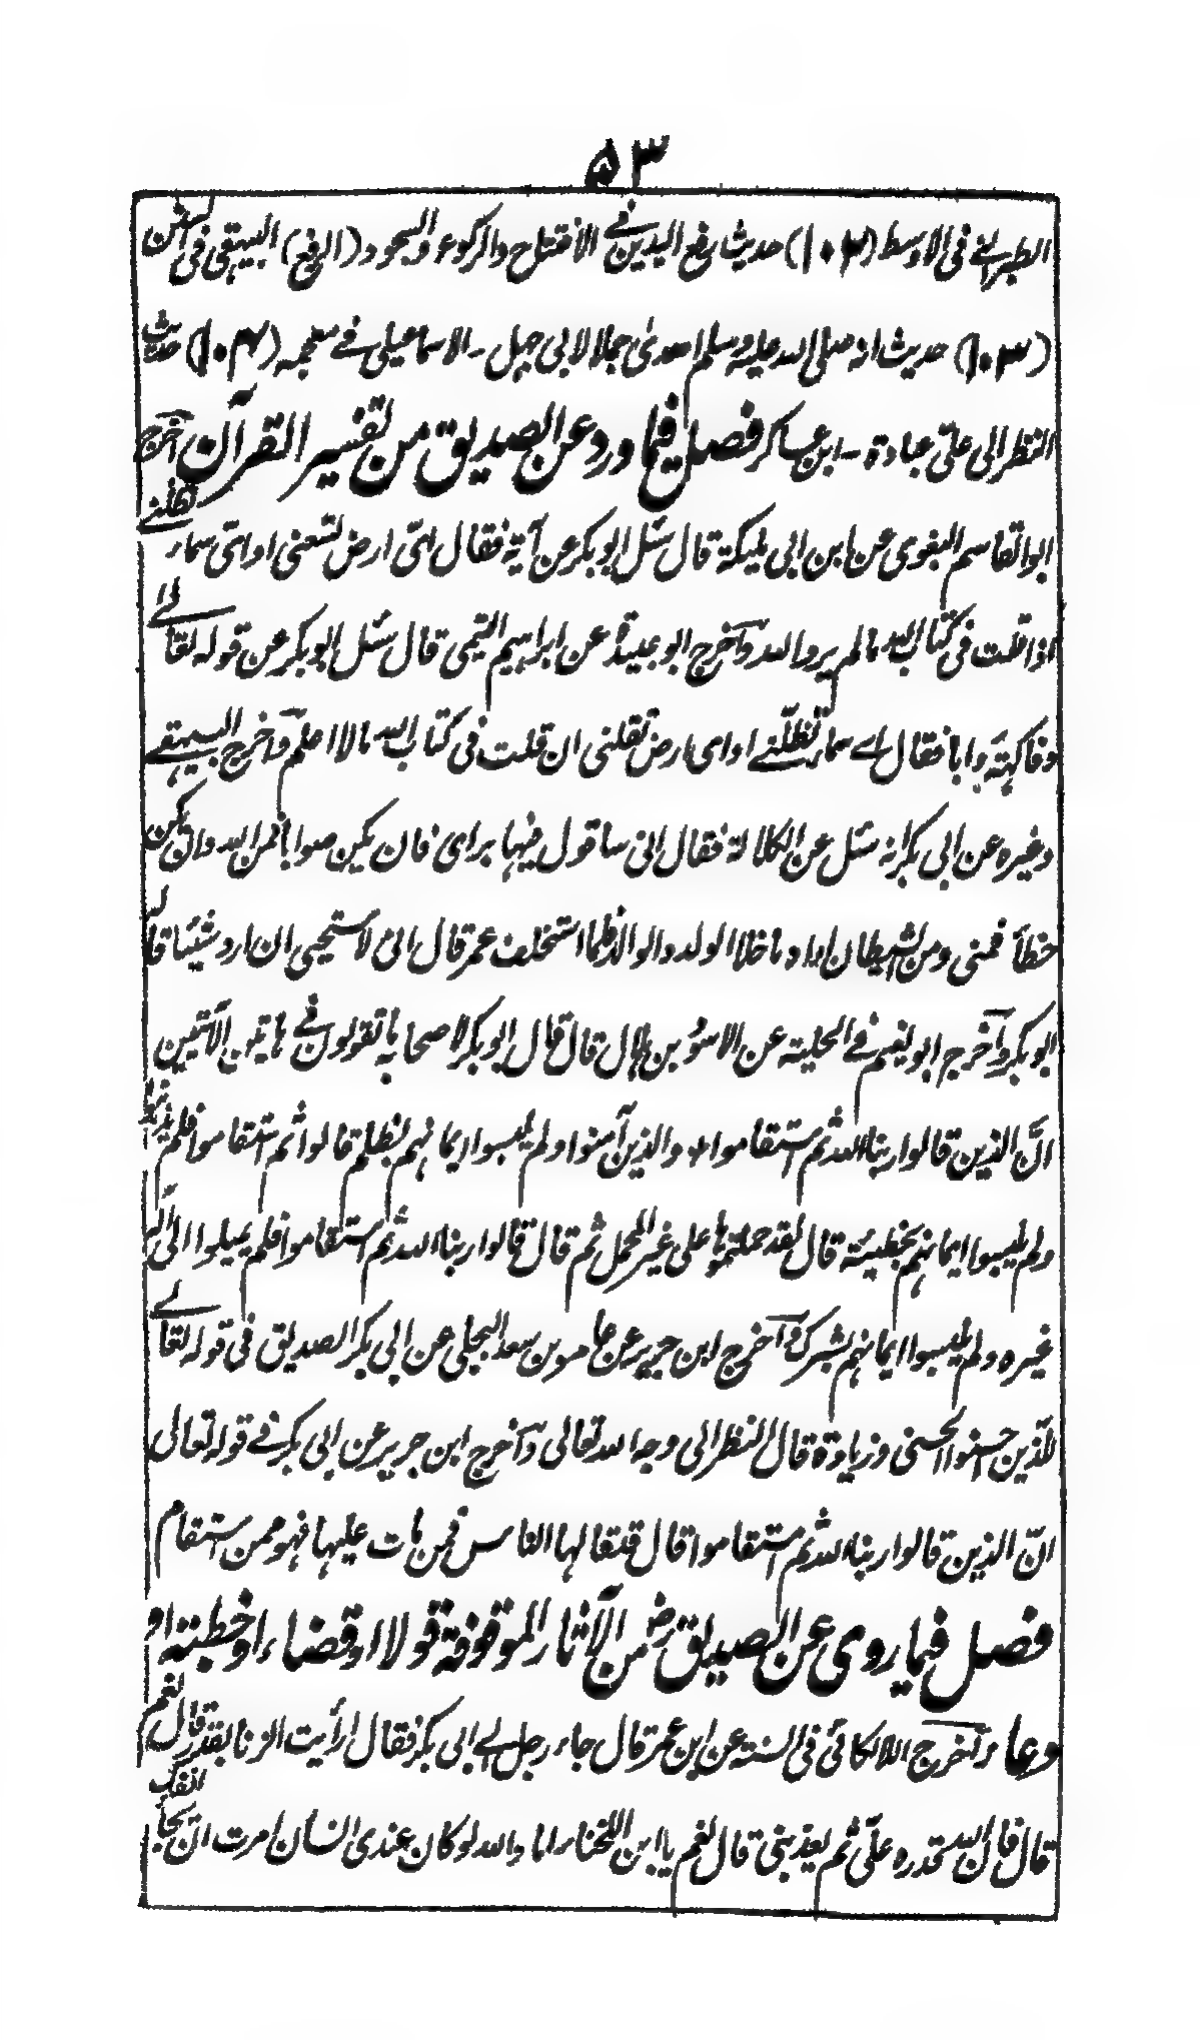 ۵۳
الطبرانے فی الاوسط (۱۰۲) حدیث رفع الیدین فے الافتتاح والرکوع والسجود (الرفع) البیہقی فی السنن
(۱۰۳) حدیث انہ صلی اللہ علیہ وسلم اھدیٰ جملا لابی جہل ۔ الاسماعیلی فے معجمہ (۱۰۴) حدیث
النظر الی علیّ عبادۃ ۔ ابن عساکر فصل فیما ورد عن الصدیق من تفسیر القرآن اخرج
ابو القاسم البغوی عن ابن ابی ملیکۃ قال سئل ابو بکر عن آیۃ فقال ایّ ارض تسعنی او ایّ سماء تظلنے
اذا قلت فی کتاب اللہ ما لم یرد اللہ وآخرج ابو عبیدۃ عن ابراہیم التیمی قال سئل ابو بکر عن قولہ تعالے
وفاکہتہ وابا فقال اے سماء تظلّنے او ای ارض تقلنی ان قلت فی کتاب اللہ مالا اعلم وآخرج البیہقے
وغیرہ عن ابی بکر انہ سئل عن الکلالۃ فقال انی ساقول فیہا برای فان یکن صوابا فمن اللہ وان یکن
خطأ فمنی ومن الشیطان اراہ ما خلا الولد والوالد فلما استخلف عمر قال انی لاستحیی ان ارد شیئا قالہ
ابو بکر وآخرج ابو نعیم فے الحلیۃ عن الاسود بن ہلال قال قال ابو بکر لاصحابہ ما تقولون فے ہاتین الآیتین
انّ الذین قالوا ربنا اللہ ثم استقاموا والذین آمنوا ولم یلبسوا ایمانہم بظلم قالوا ثم استقاموا فلم
ولم یلبسوا ایمانہم بخطیئۃ قال لقد حملتموہا علی غیر المحمل ثم قال قالوا ربنا اللہ ثم استقاموا فلم یمیلوا الی الٰہ
غیرہ ولم یلبسوا ایمانہم بشرک وآخرج ابن جریر عن عامر بن سعد البجلی عن ابی بکر الصدیق فی قولہ تعالے
للذین احسنوا الحسنی وزیادۃ قال النظر الی وجہ اللہ تعالی وآخرج ابن جریر عن ابی بکر فے قولہ تعالی
انّ الذین قالوا ربنا اللہ ثم استقاموا قال قد قالہا الناس فمن مات علیہا فہو ممن استقام
فصل فیما روی عن الصدیق رض من الآثار الموقوفۃ قولا او قضاء او خطبۃ او
دعاء آخرج اللالکائی فی السنۃ عن ابن عمر قال جاء رجل الے ابی بکر فقال ارأیت الزنا بقدر قال نعم
قال فان اللہ قدرہ علیّ ثم یعذبنی قال نعم یا ابن اللخناء اما واللہ لو کان عندی انسان امرت ان یجأ انفک